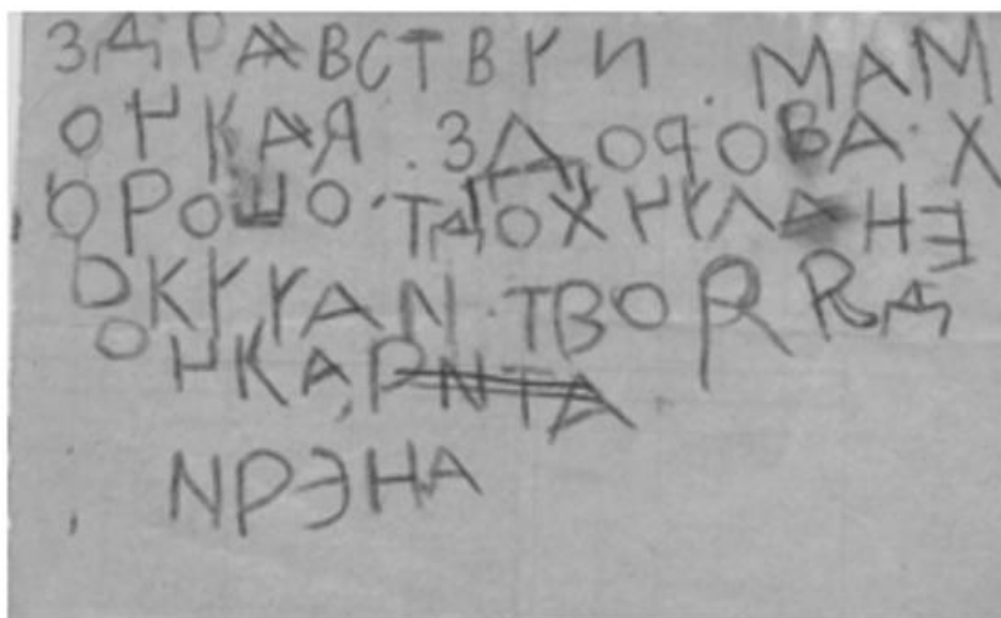 ЗДРАВСТВУИ. МАМ
ОЧКАЯ. ЗДОРОВА. Х
ОРОШО. ТДОХНУЛАНЭ
ОКУУАN. ТВОЯ ЯД
ОЧКА,
NРЭНА